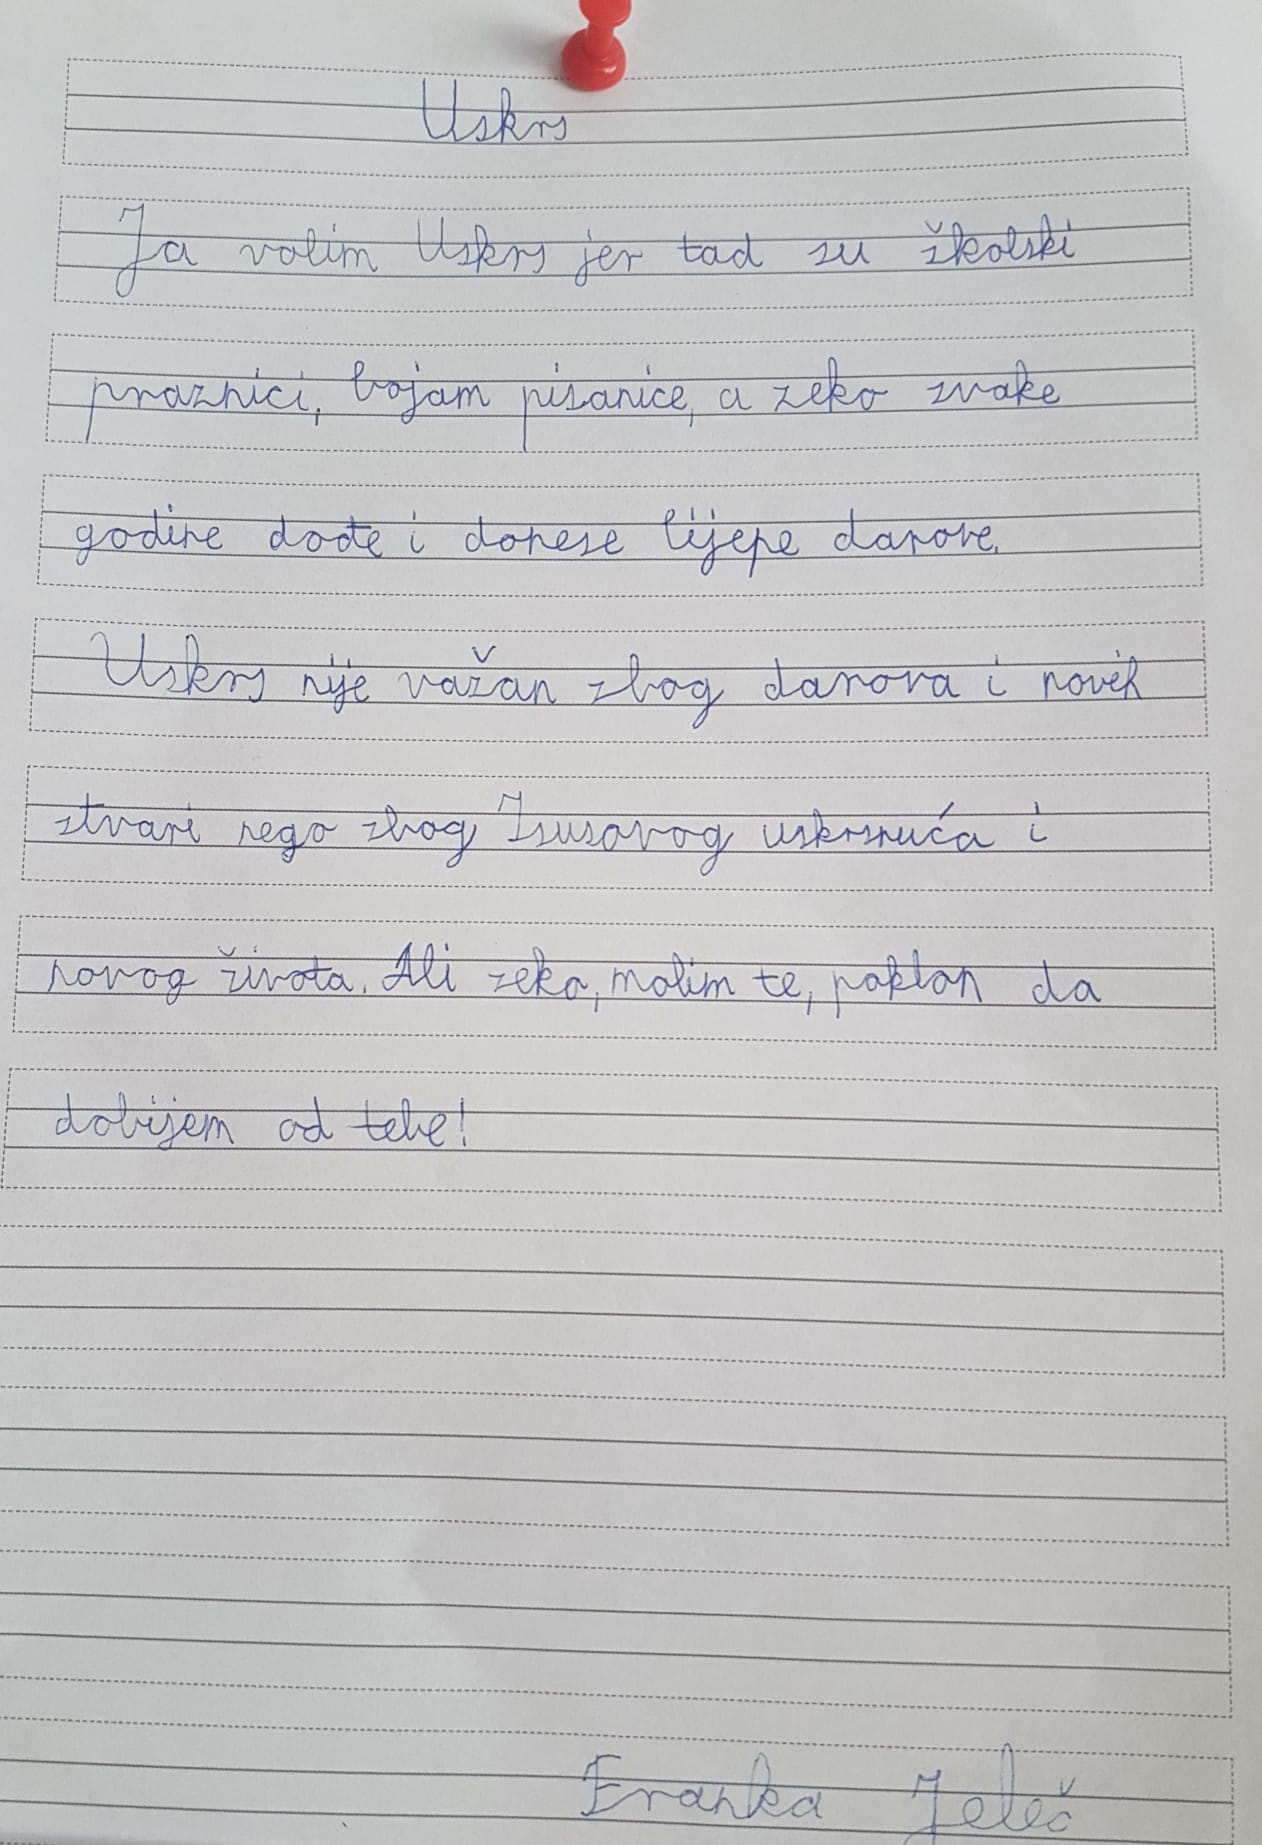 Uskrs
Ja volim Uskrs jer tad su školski
praznici, bojam pisanice, a zeko svake
godine dođe i donese lijepe darove.
Uskrs nije važan zbog darova i novih
stvari nego zbog Isusovog uskrsnuća i
novog života. Ali zeko, molim te, poklon da
dobijem od tebe!
Franka Jeleč